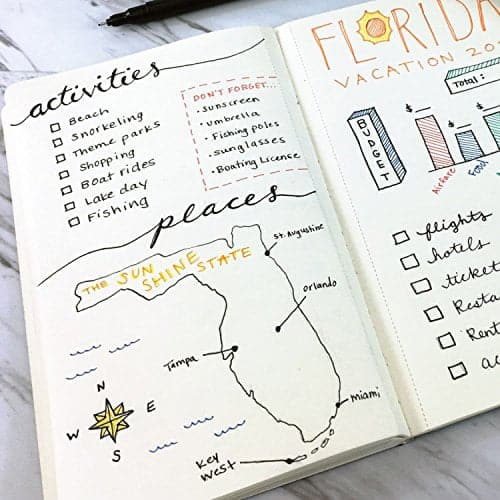 activities
Beach
Snorkeling
Theme parks
Shopping
Boat rides
Lake day
Fishing
DON'T FORGET...
• Sunscreen
• umbrella
• Fishing poles
• sunglasses
• Boating License
places
THE SUN SHINE STATE
St. Augustine
orlando
Tampa
miami
Key West
N
W E
S
FLORIDA
VACATION 20
Total:
BUDGET
$
$
Airfare
Food
flights
hotels
ticket
Resta
Rent